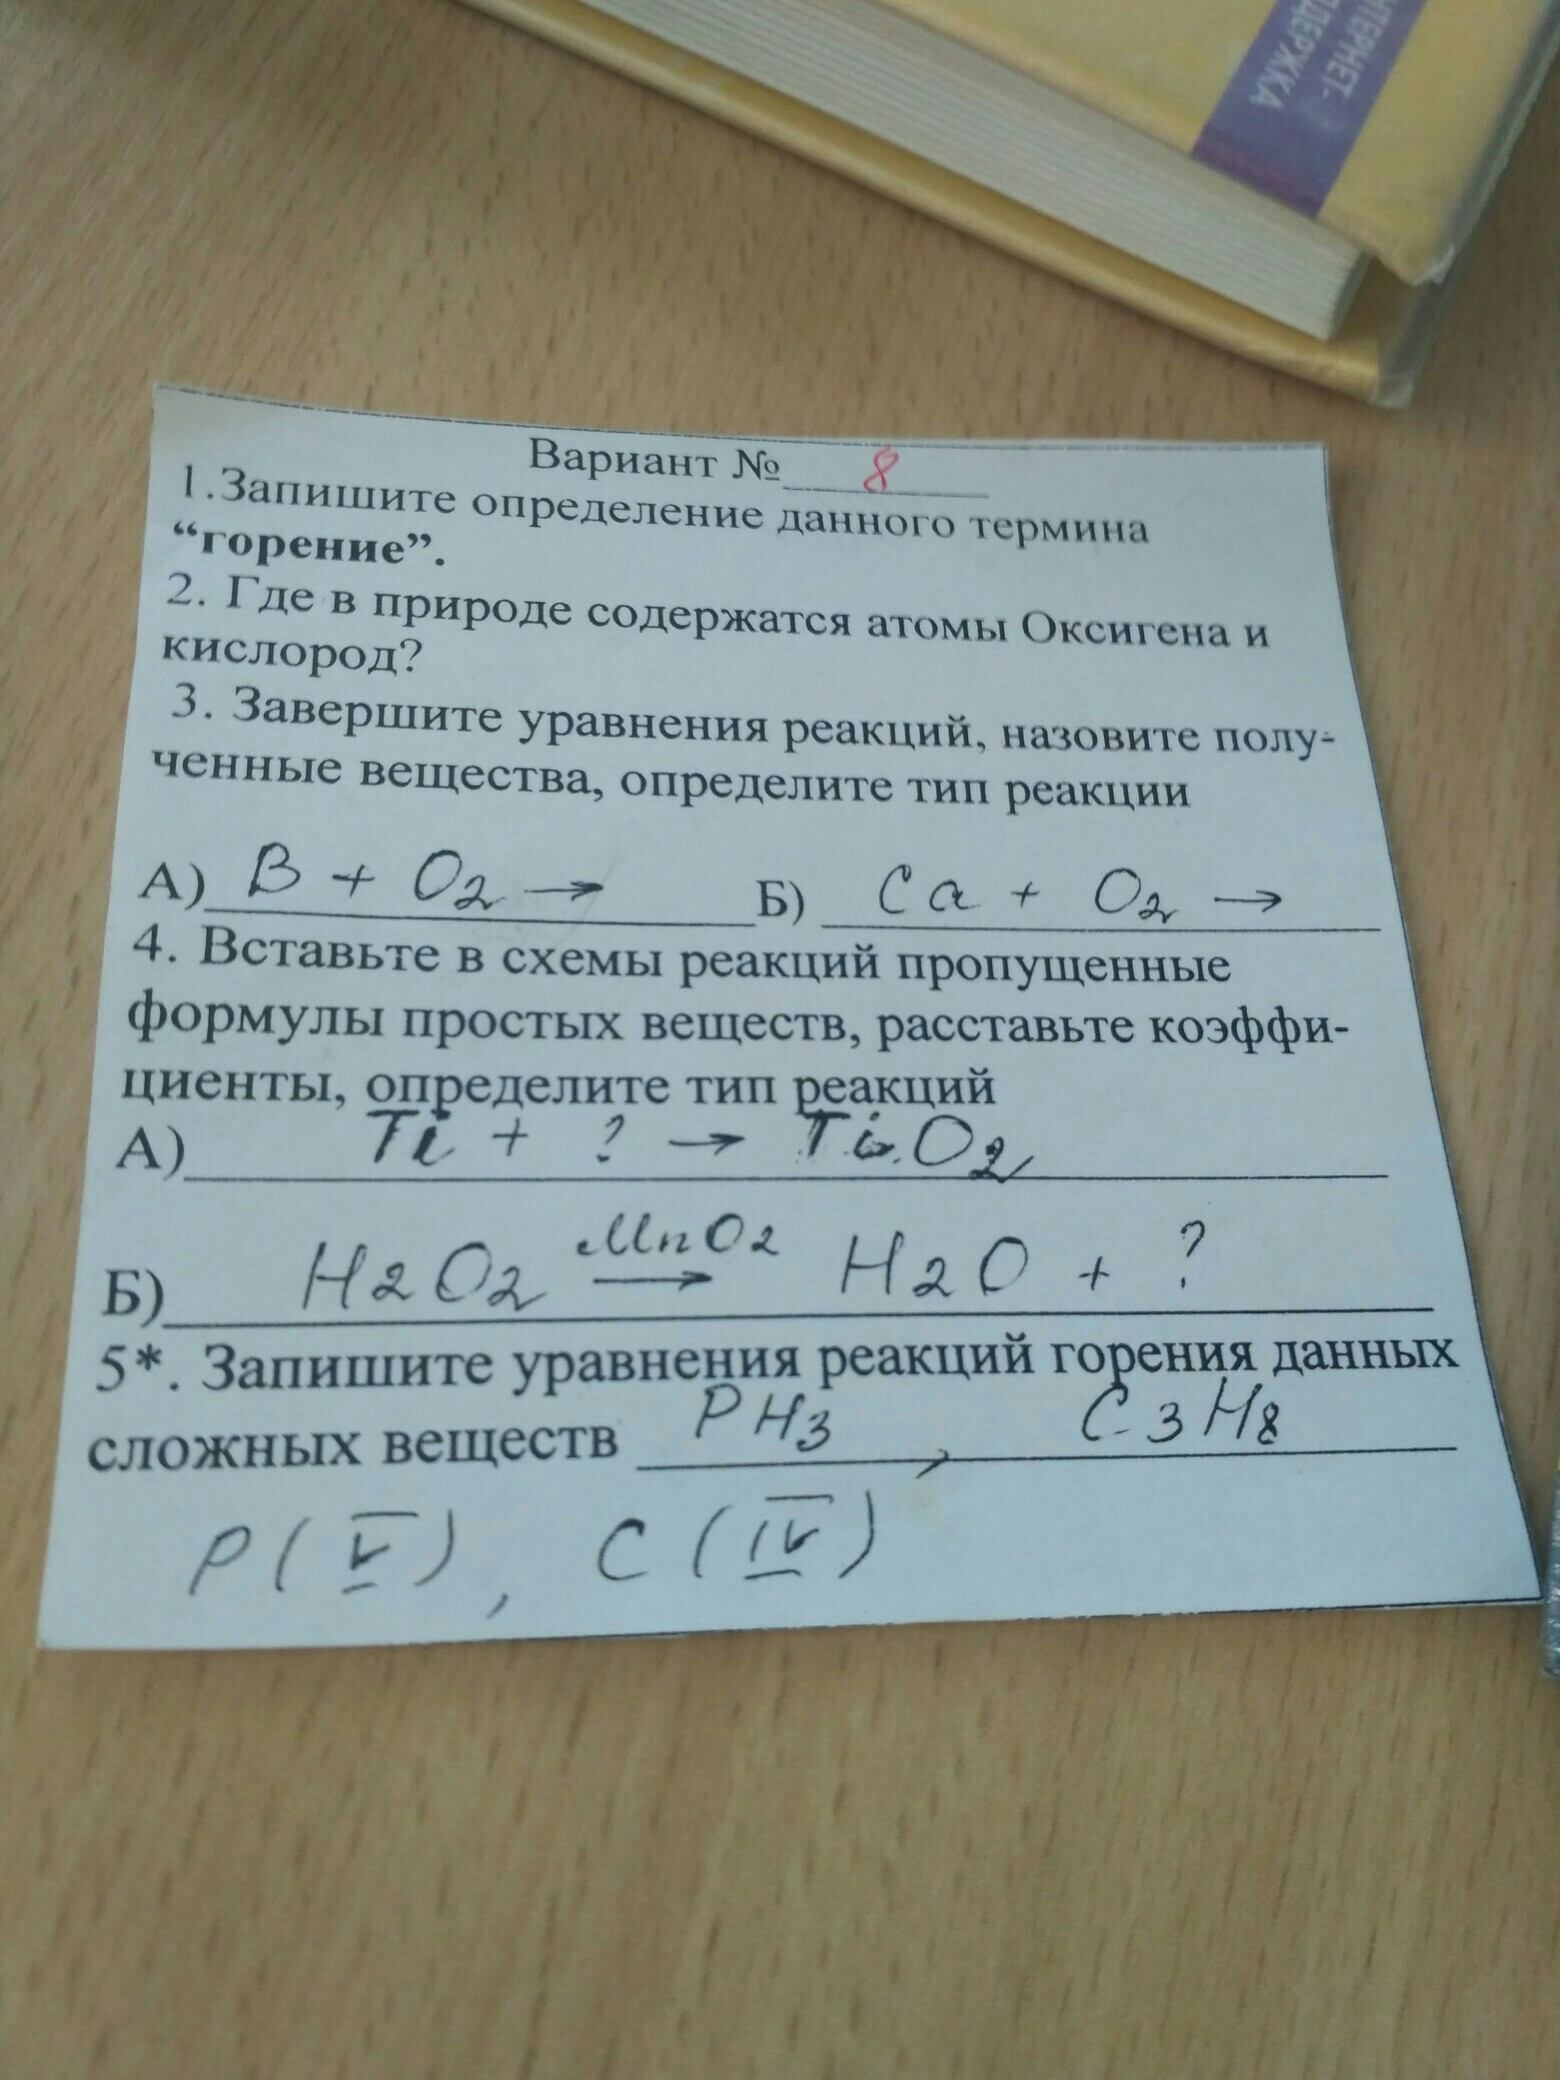 ИНТЕРНЕТ-
ПОДДЕРЖКА
Вариант № 8
1.Запишите определение данного термина
“горение”.
2. Где в природе содержатся атомы Оксигена и
кислород?
3. Завершите уравнения реакций, назовите полу-
ченные вещества, определите тип реакции
А) B + O2 → Б) Ca + O2 →
4. Вставьте в схемы реакций пропущенные
формулы простых веществ, расставьте коэффи-
циенты, определите тип реакций
А) Ti + ? → TiO2
Б) H2O2 MnO2 → H2O + ?
5*. Запишите уравнения реакций горения данных
сложных веществ PH3, C3H8
P(V), C(IV)